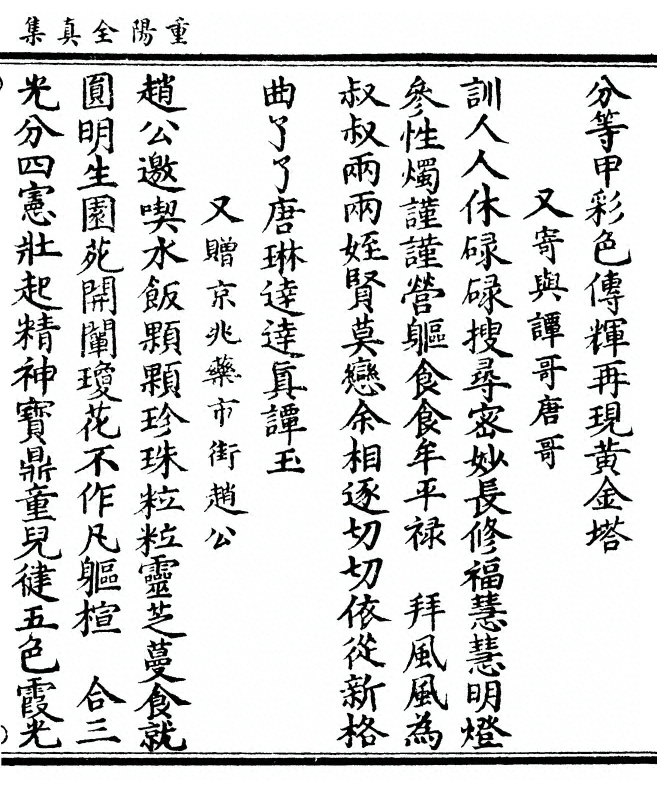 重陽全真集
分等甲彩色傳輝再現黃金塔
又寄與譚哥唐哥
訓人人休碌碌搜尋密妙長修福慧慧明燈
參性燭謹謹營軀食食牟平禄　拜風風為
叔叔兩兩姪賢莫戀余相逐切切依從新格
曲了了唐琳逹逹真譚玉
又贈京兆藥市街趙公
趙公邀喫水飯顆顆珍珠粒粒靈芝蔓食就
圓明生園苑開闡瓊花不作凡軀楦　合三
光分四憲壯起精神寶鼎童兒健五色霞光